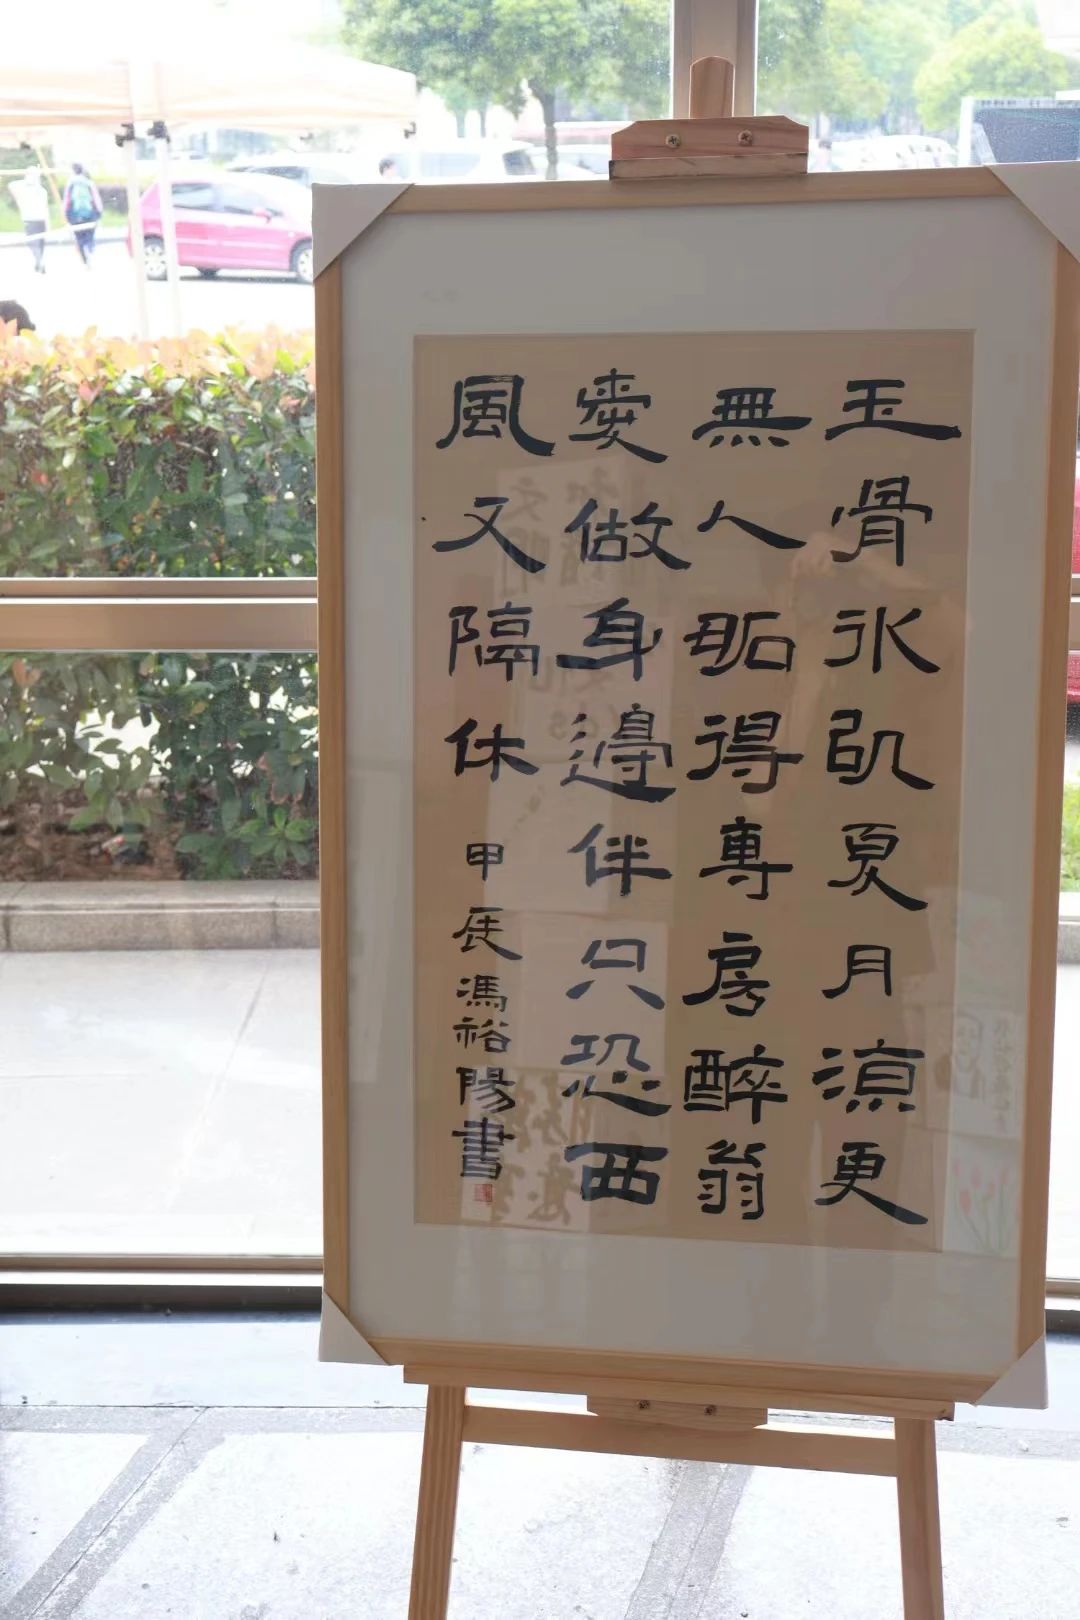 玉骨氷肌夏月涼更
無人妬得專房醉翁
愛做身邊伴只恐西
風又隔休
甲辰馮裕陽書